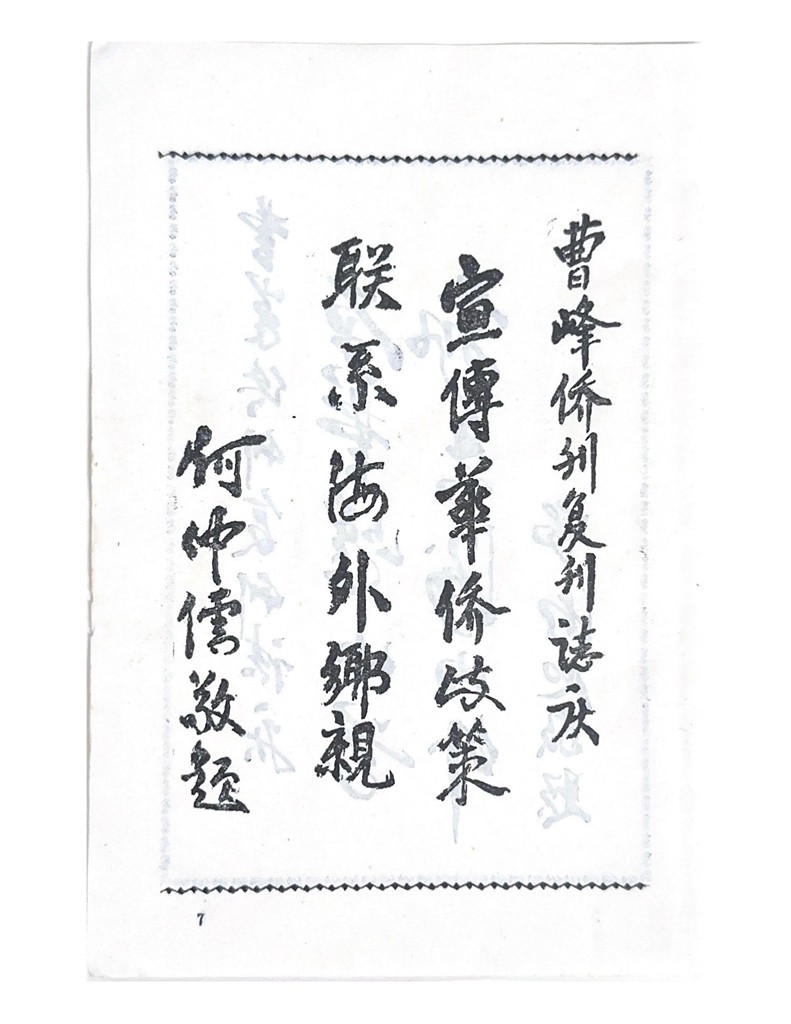 曹峰侨刊复刊誌庆
宣傳華侨政策
联系海外鄉親
何仲儒敬题
7